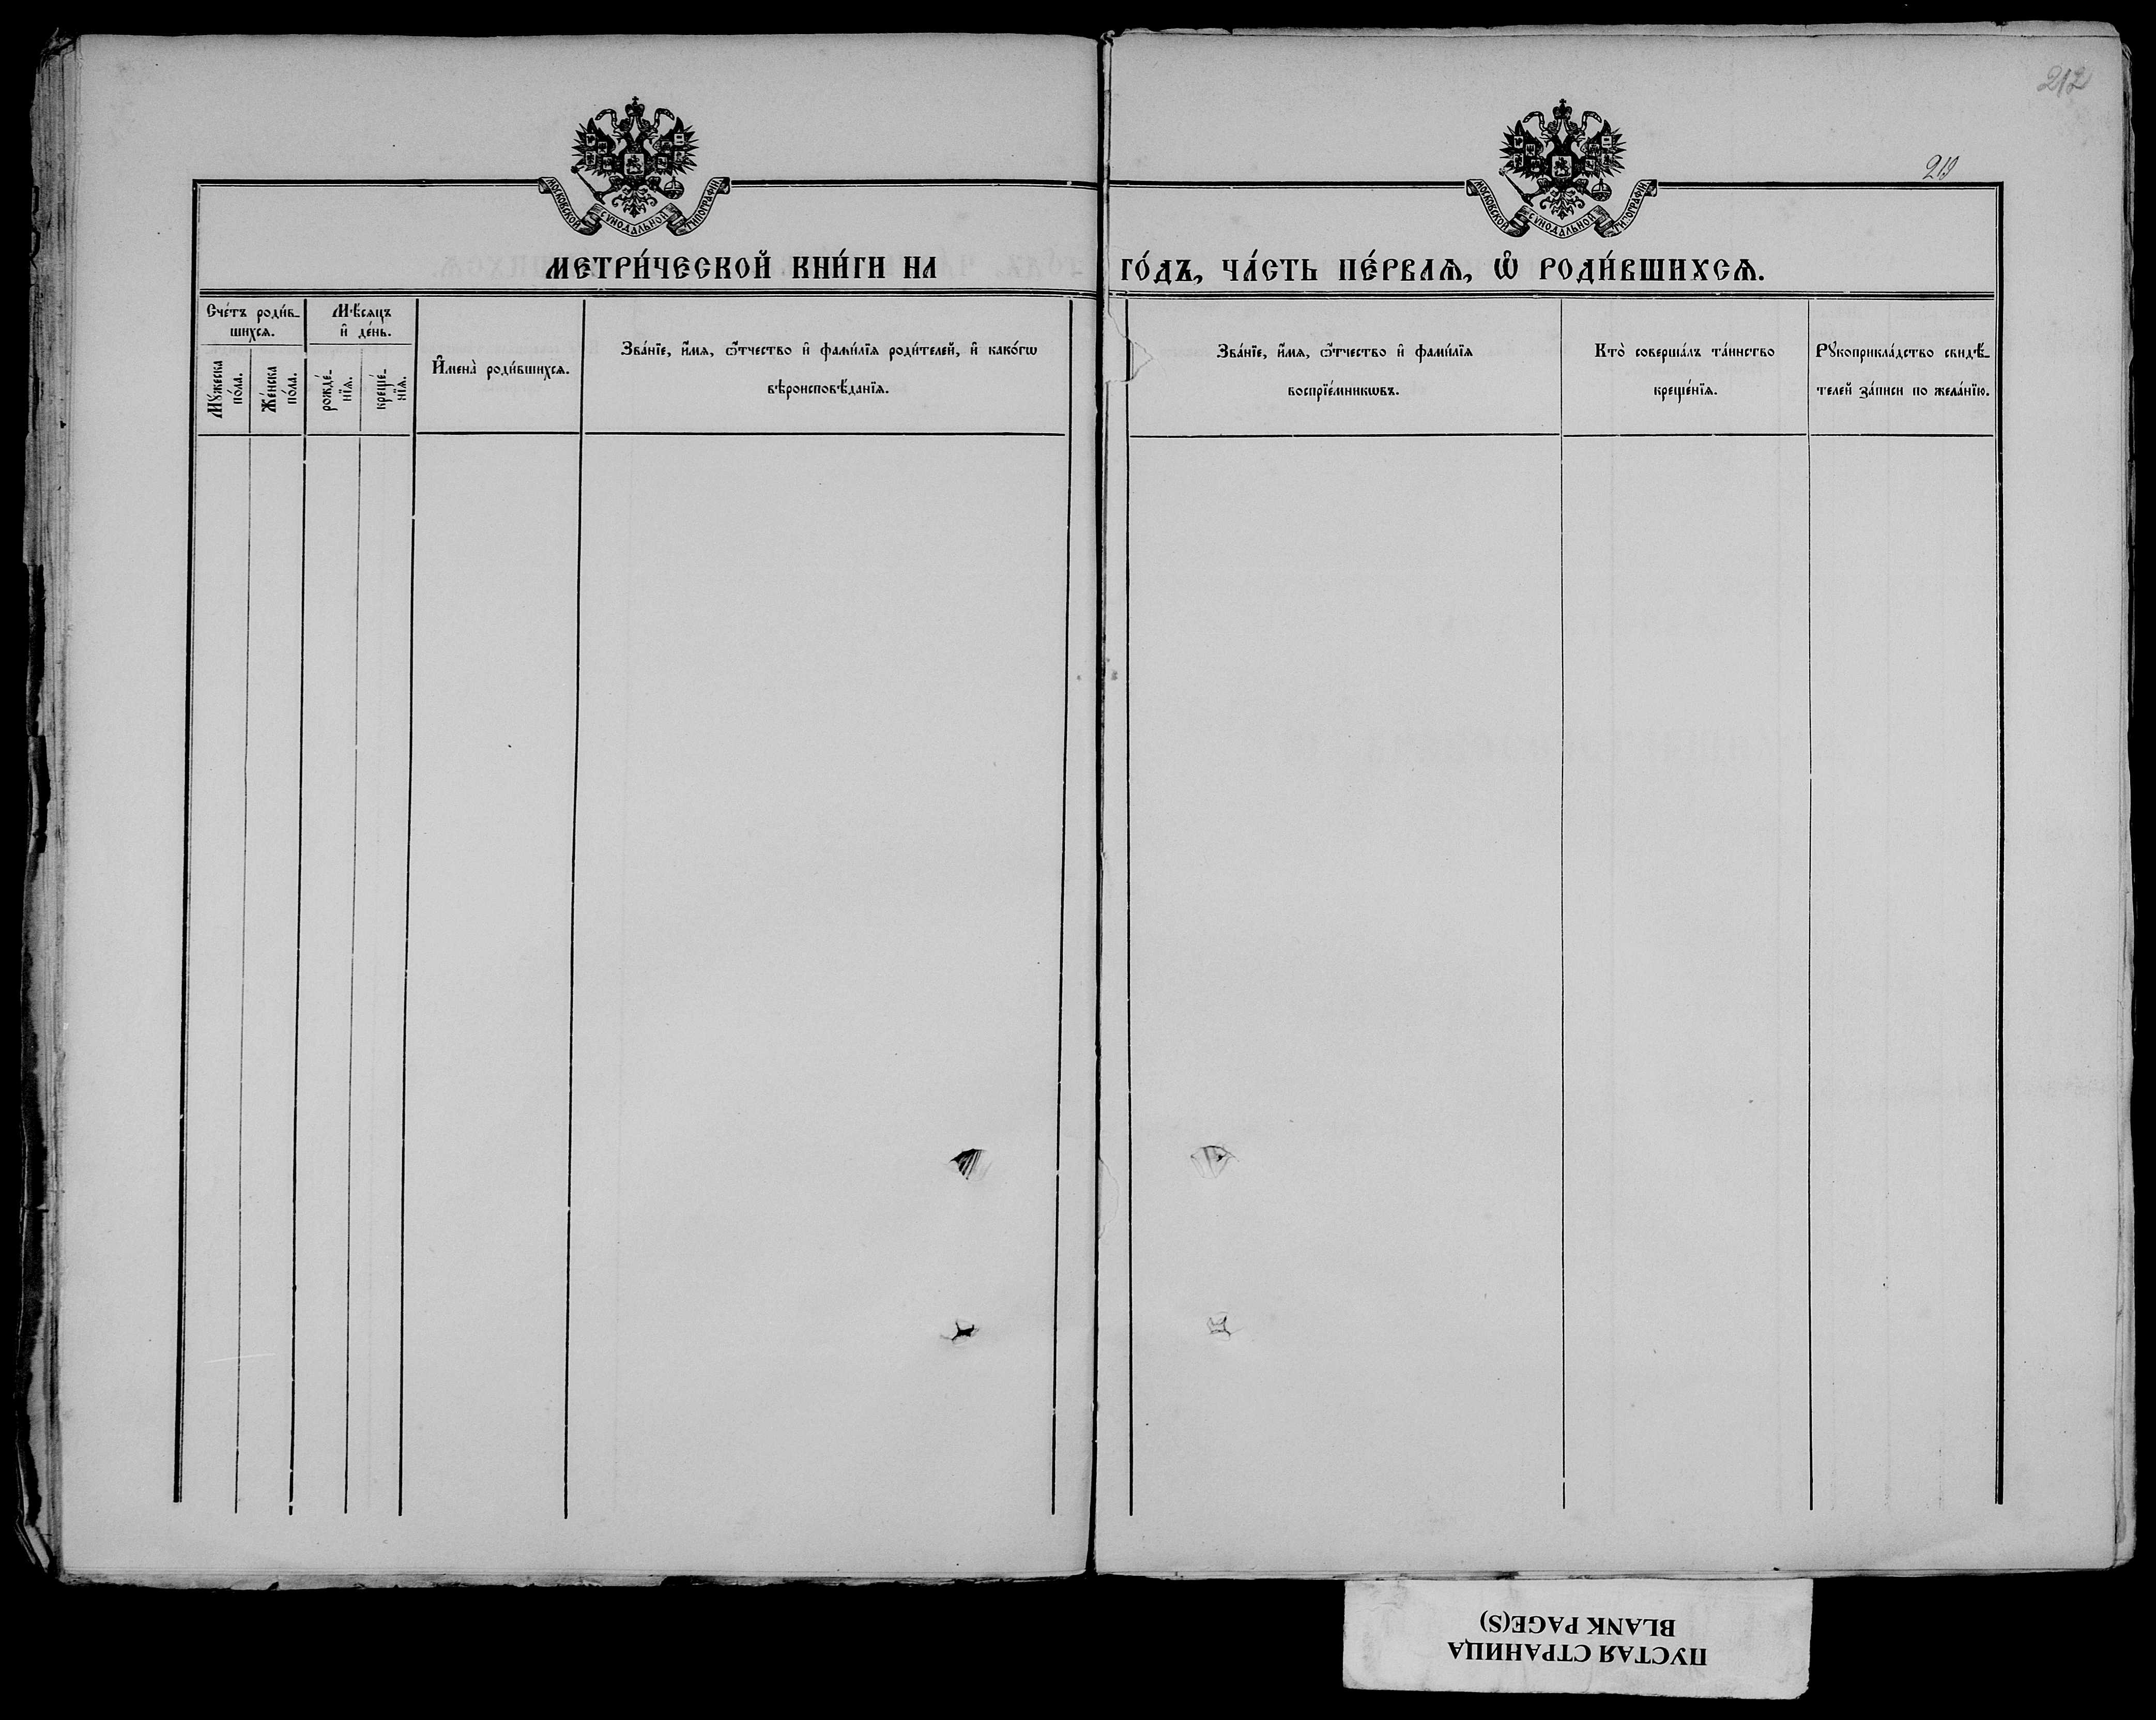 212
213
МОСКОВСКОЙ СѴНОДАЛЬНОЙ ТИПОГРАФІИ
МОСКОВСКОЙ СѴНОДАЛЬНОЙ ТИПОГРАФІИ
МЕТРИ́ЧЕСКОЙ КНИ́ГИ НА ГО́ДЪ, ЧА́СТЬ ПЕ́РВАѦ, Ѡ҆ РОДИ́ВШИХСѦ.
Сче́тъ роди́в-
шихсѧ.
Мꙋ́жеска
по́ла.
Же́нска
по́ла.
Мѣ́сѧцъ
и҆ де́нь.
рожде́-
нїѧ.
креще́-
нїѧ.
И҆мена̀ роди́вшихсѧ.
Зва́нїе, и҆́мѧ, ѻ҆́тчество и҆ фами́лїѧ роди́телей, и҆ како́гѡ
вѣроисповѣ́данїѧ.
Зва́нїе, и҆́мѧ, ѻ҆́тчество и҆ фами́лїѧ
воспрїе́мникѡвъ.
Кто̀ соверша́лъ та́инство
креще́нїѧ.
Рꙋкоприкла́дство свидѣ́-
телей за́писи по жела́нїю.
ПУСТАЯ СТРАНИЦА
BLANK PAGE(S)